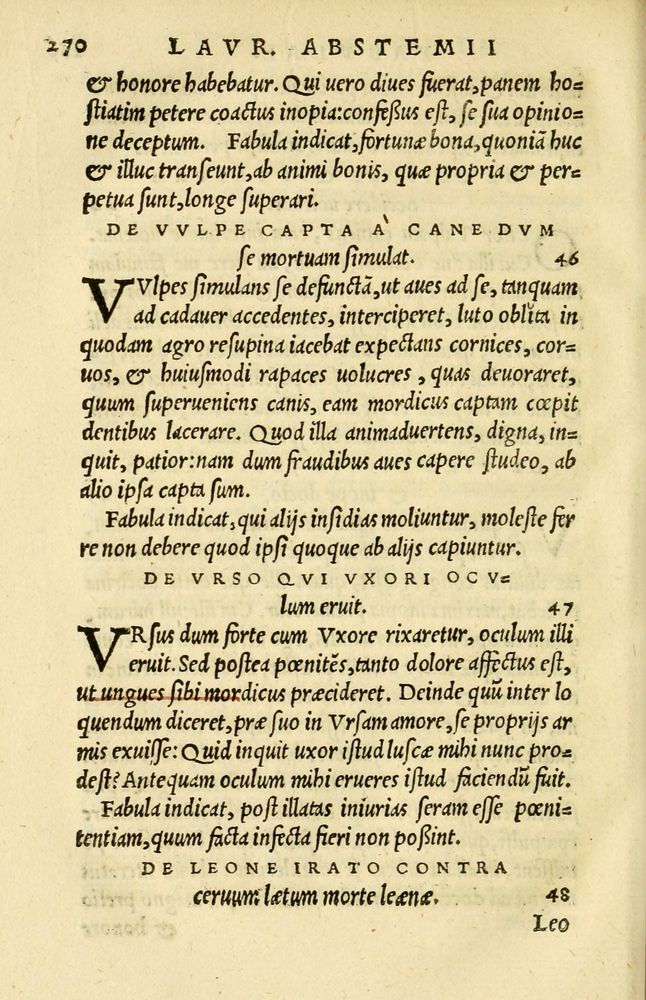 270 LAVR. ABSTEMII
& honore habebatur. Qui uero diues fuerat, panem ho=
ſtiatim petere coactus inopia: confeßus eſt, ſe ſua opinio=
ne deceptum. Fabula indicat, fortunæ bona, quoniā huc
& illuc tranſeunt, ab animi bonis, quæ propria & per=
petua ſunt, longe ſuperari.
DE VVLPE CAPTA À CANE DVM
ſe mortuam ſimulat. 46
VVlpes ſimulans ſe defunctā, ut aues ad ſe, tanquam
ad cadauer accedentes, interciperet, luto oblita in
quodam agro reſupina iacebat expectans cornices, cor=
uos, & huiuſmodi rapaces uolucres, quas deuoraret,
quum ſuperueniens canis, eam mordicus captam cœpit
dentibus lacerare. Quod illa animaduertens, digna, in=
quit, patior: nam dum fraudibus aues capere ſtudeo, ab
alio ipſa capta ſum.
Fabula indicat, qui alijs inſidias moliuntur, moleſte fer
re non debere quod ipſi quoque ab alijs capiuntur.
DE VRSO QVI VXORI OCV=
lum eruit. 47
VRſus dum forte cum Vxore rixaretur, oculum illi
eruit. Sed poſtea pœnitēs, tanto dolore affectus eſt,
ut ungues ſibi mordicus præcideret. Deinde quū inter lo
quendum diceret, præ ſuo in Vrſam amore, ſe proprijs ar
mis exuiſſe: Quid inquit uxor iſtud luſcæ mihi nunc pro=
deſt? Antequam oculum mihi erueres iſtud faciendū fuit.
Fabula indicat, poſt illatas iniurias ſeram eſſe pœni=
tentiam, quum facta infecta fieri non poßint.
DE LEONE IRATO CONTRA
ceruum lætum morte leænæ. 48
Leo